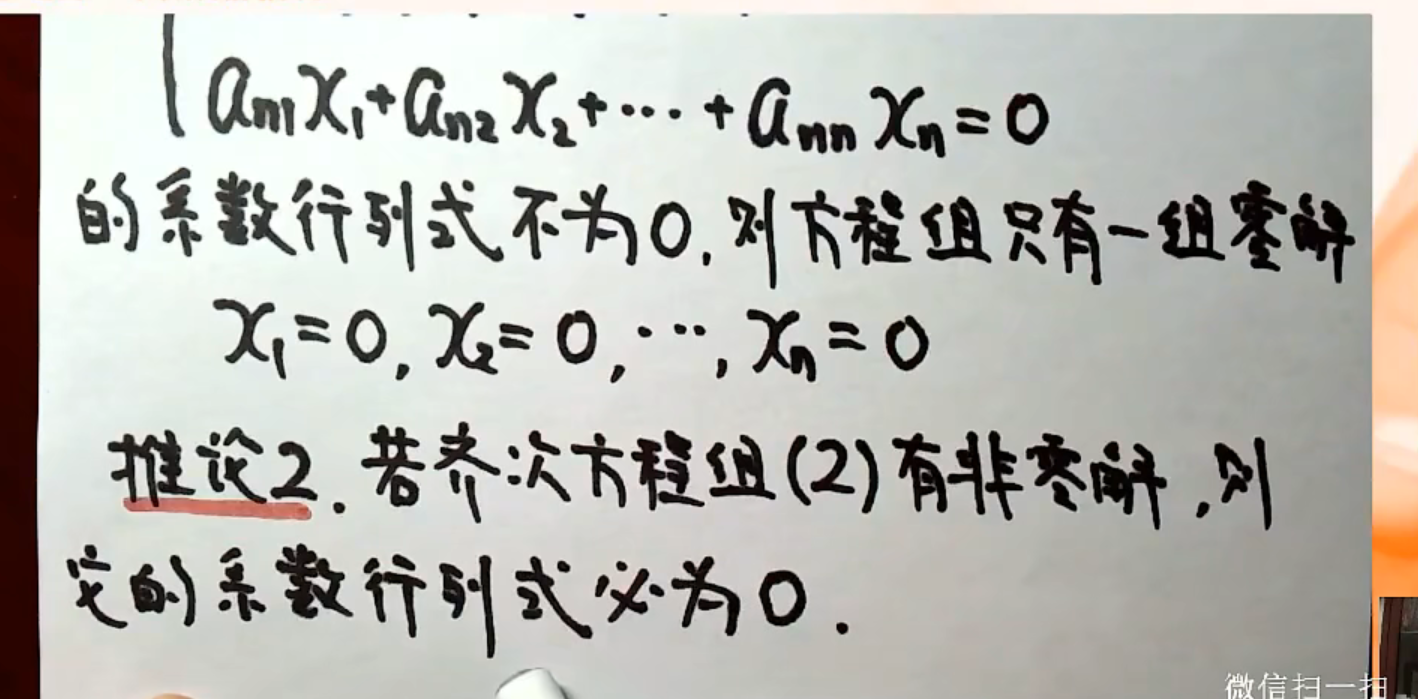 aₙ₁x₁+aₙ₂x₂+⋯+aₙₙxₙ=0
的系数行列式不为0,则方程组只有一组零解
x₁=0, x₂=0, ⋯, xₙ=0
推论2. 若齐次方程组(2)有非零解,则
它的系数行列式必为0.
微信扫一扫